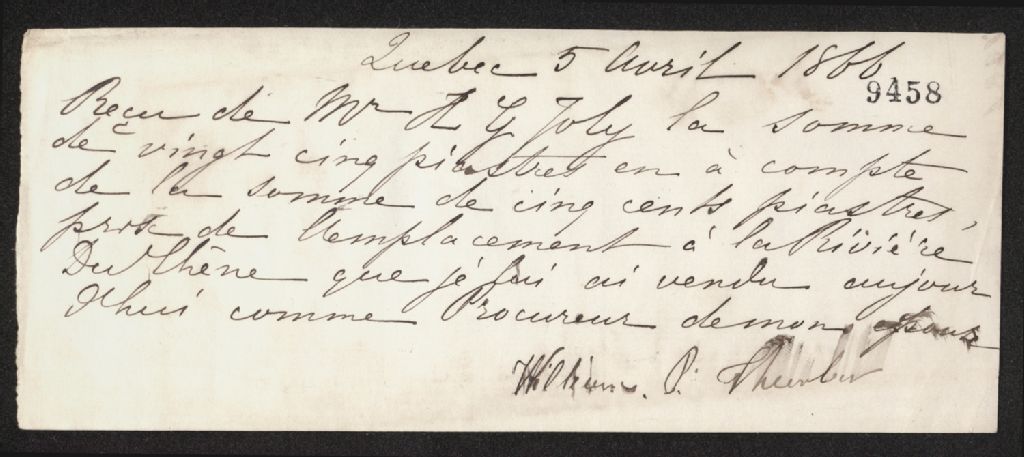 Quebec 5 Avril 1866
9458
Reçu de Mr H G Joly la somme
de vingt cinq piastres en à compte
de la somme de cinq cents piastres,
prix de l'emplacement à la Rivière
Du Chêne que je lui ai vendu aujour
d'hui comme Procureur de mon
William. P.